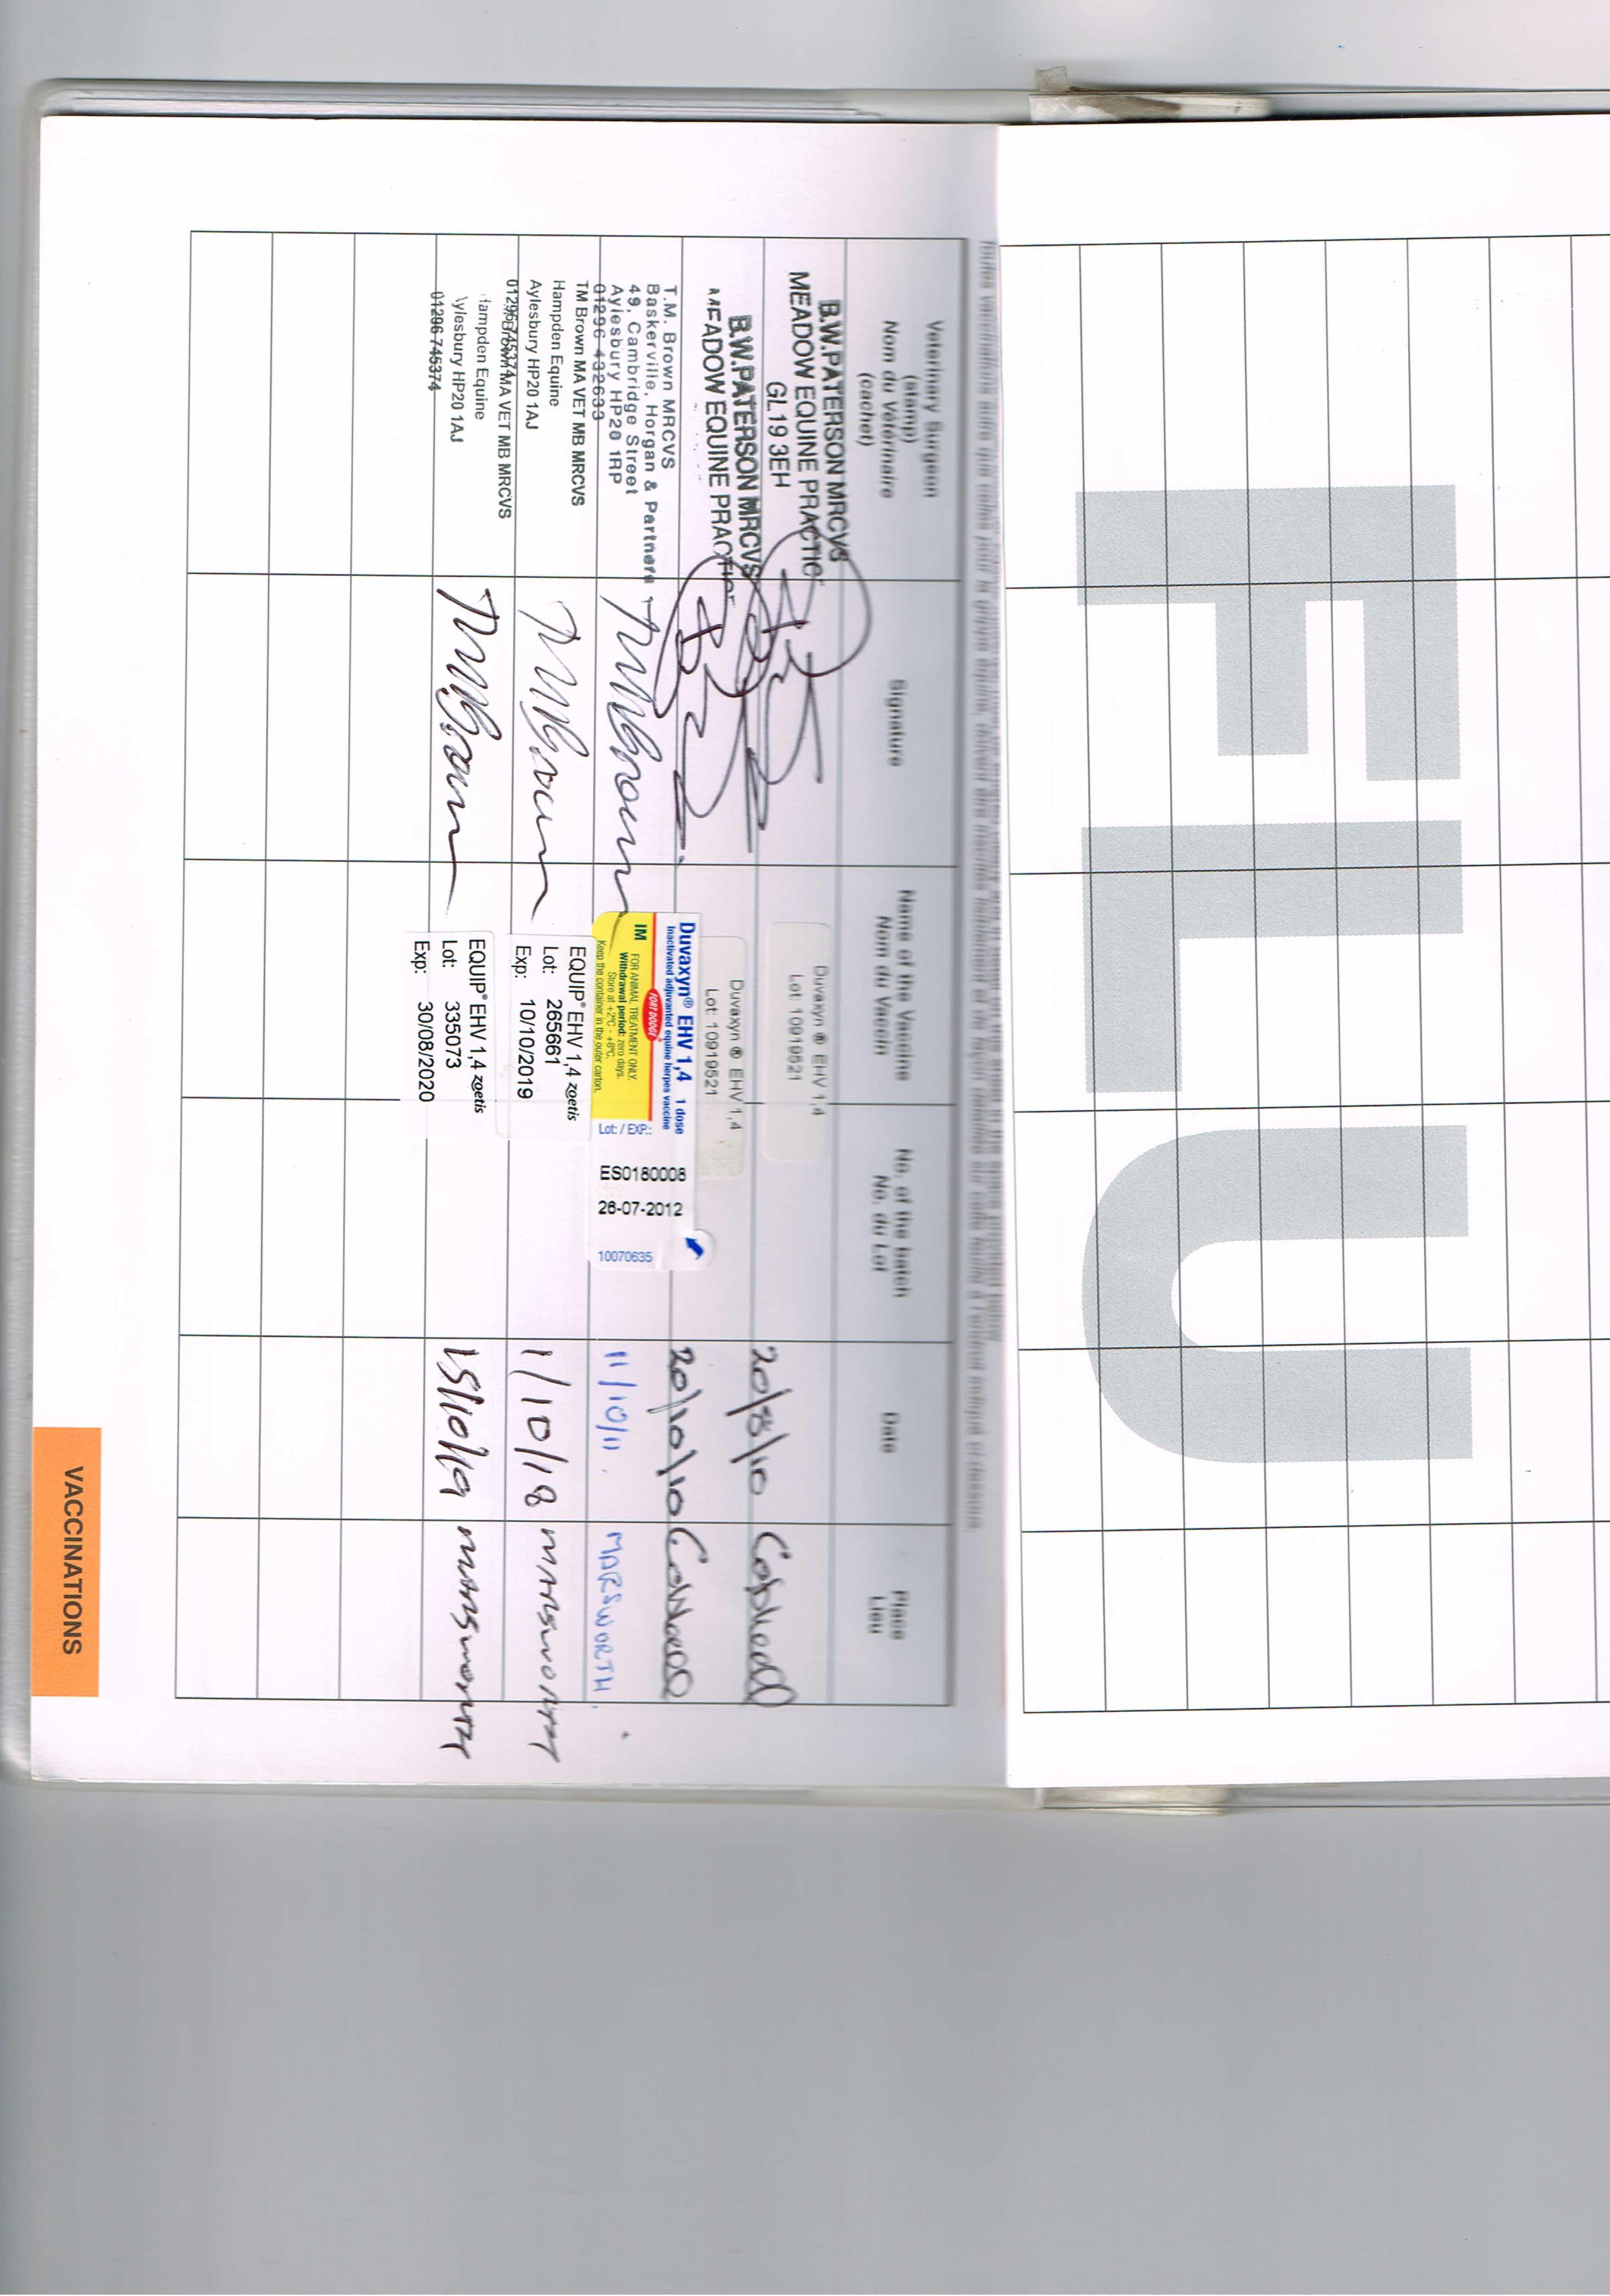 FLU
Veterinary Surgeon
(stamp)
Nom du Vétérinaire
(cachet)
Signature
Name of the Vaccine
Nom du Vaccin
No. of the batch
No. du Lot
Date
Place
Lieu
B.W.PATERSON MRCVS
MEADOW EQUINE PRACTIC
GL19 3EH
Duvaxyn ® EHV 1,4
Lot: 10919521
20/8/10
B.W.PATERSON MRCVS
MEADOW EQUINE PRACTICE
Duvaxyn ® EHV 1,4
Lot: 10919521
20/10/10
T.M. Brown MRCVS
Baskerville, Horgan & Partners
49, Cambridge Street
Aylesbury HP20 1RP
01296 432633
TMBrown
Duvaxyn® EHV 1,4 1 dose
Inactivated adjuvanted equine herpes vaccine
FORT DODGE
IM FOR ANIMAL TREATMENT ONLY.
Withdrawal period: zero days.
Store at +2°C - +8°C.
Keep the container in the outer carton.
Lot: / EXP.:
ES0180008
28-07-2012
10070635
11/10/11.
MARSWORTH.
TM Brown MA VET MB MRCVS
Hampden Equine
Aylesbury HP20 1AJ
01296 745374
TMBrown
EQUIP® EHV 1,4 zoetis
Lot: 265661
Exp: 10/10/2019
1/10/18
MARSWORTH
TM Brown MA VET MB MRCVS
Hampden Equine
Aylesbury HP20 1AJ
01296 745374
TMBrown
EQUIP® EHV 1,4 zoetis
Lot: 335073
Exp: 30/08/2020
15/10/19
MARSWORTH
VACCINATIONS